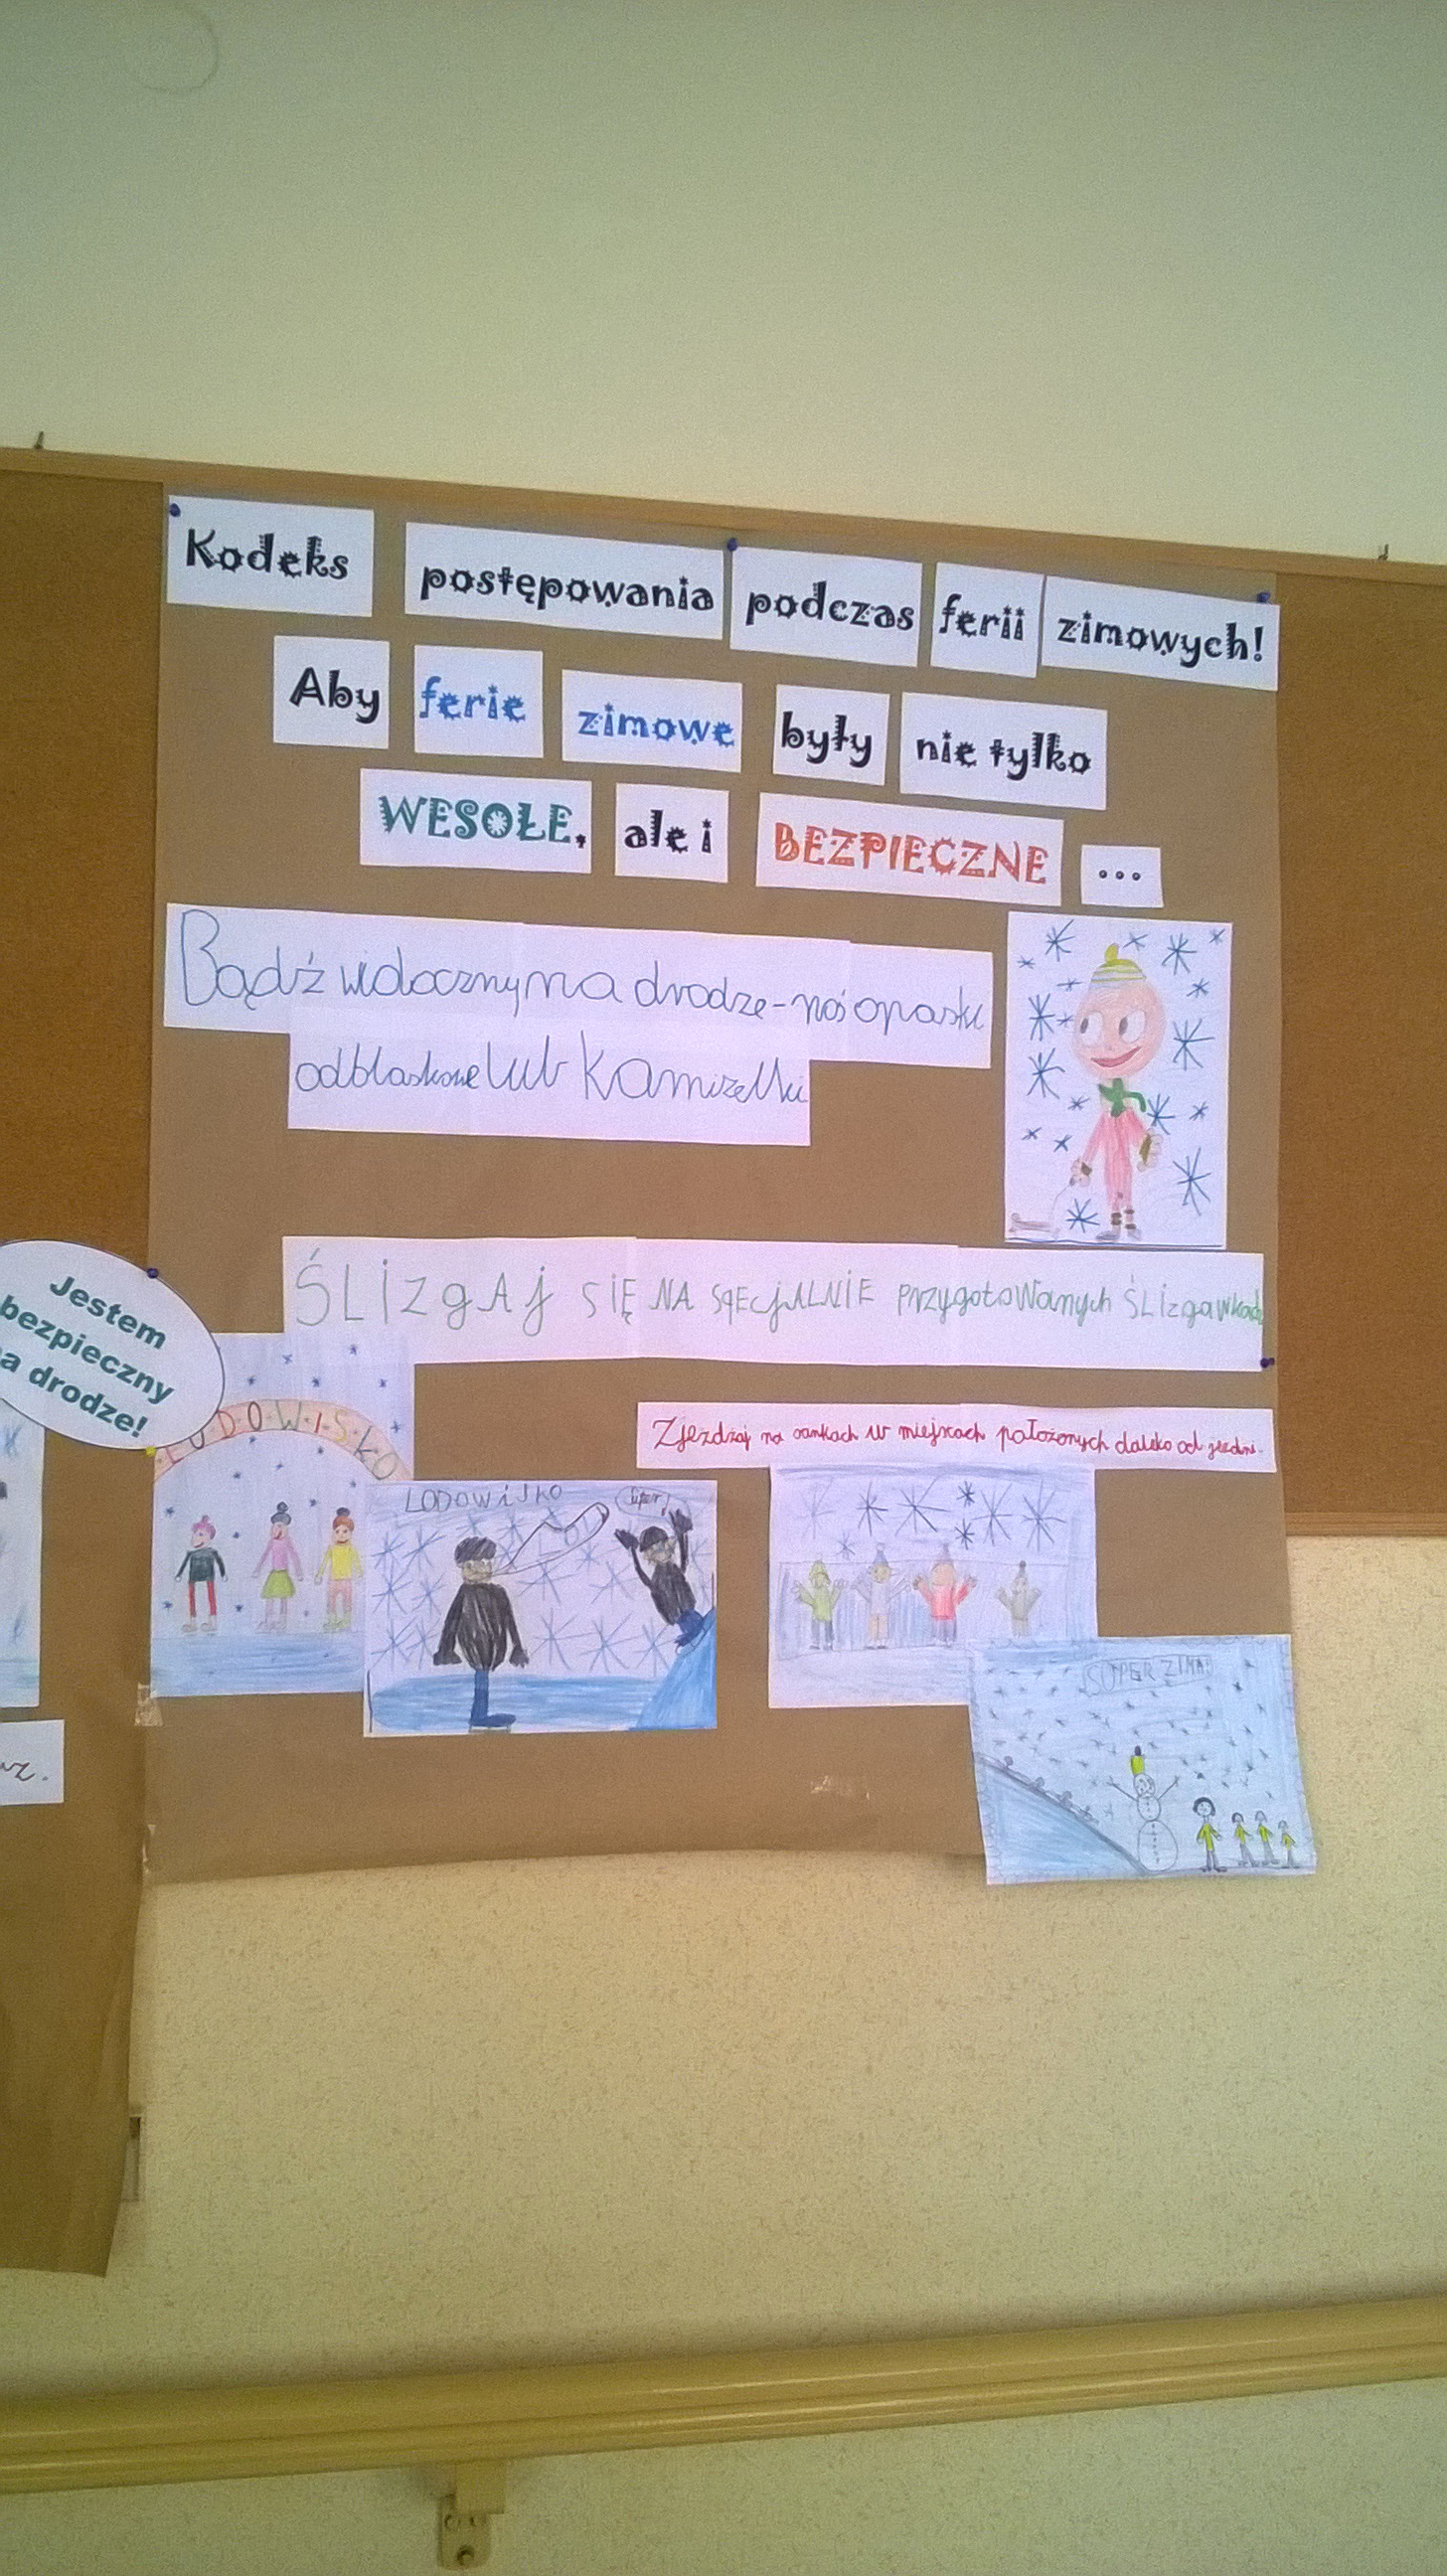 Kodeks postępowania podczas ferii zimowych!
Aby ferie zimowe były nie tylko
WESOŁE, ale i BEZPIECZNE ...
Bądź widoczny na drodze - noś opaski
odblaskowe lub kamizelki
ŚLizgAj SIĘ NA SpEcjALNIE przygotoWanych ŚLizgawkach
Jestem
bezpieczny
na drodze!
LODOWISkO
Zjeżdżaj na sankach w miejscach położonych daleko od jezdni.
LODOWiSKO
Super!
SUPER ZIMA!